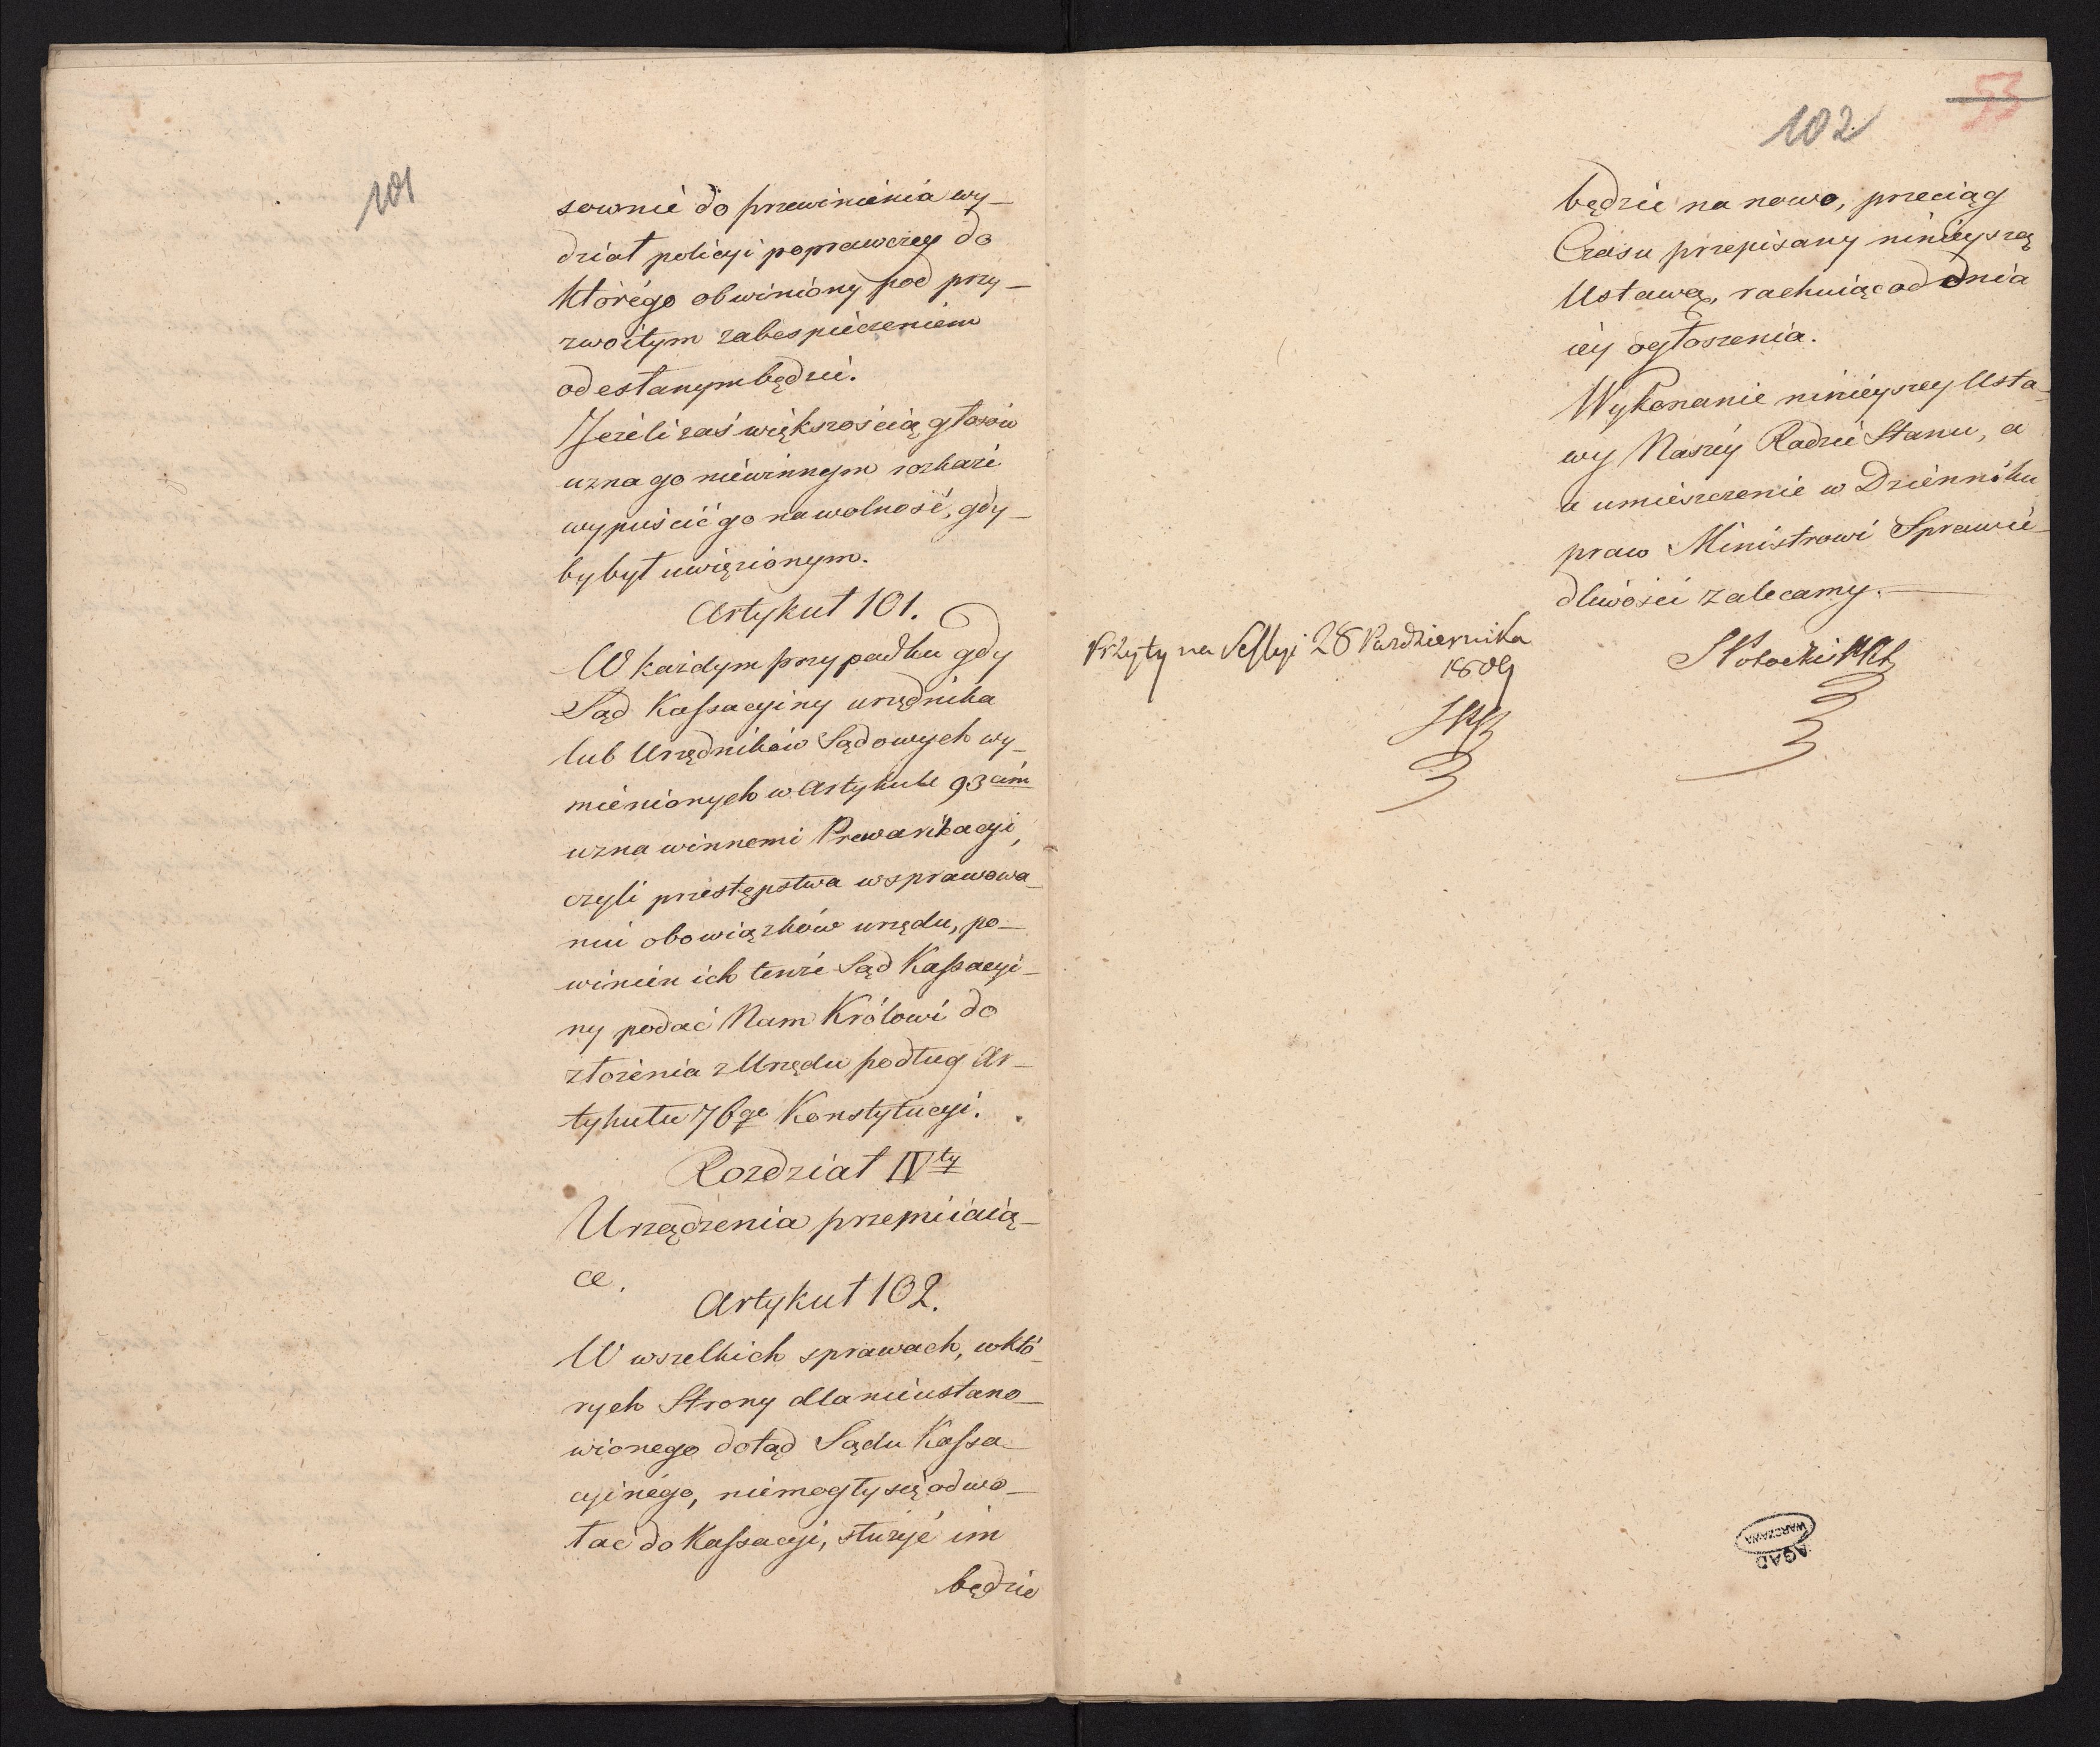 101
sownie do przewinienia wy-
dział policyi poprawczey do
którego obwiniony pod przy-
zwoitym zabespieczeniem
odesłanym będzie.
Jeżeli zaś większością głosów
uzna go niewinnym rozkaże
wypuścić go na wolność, gdy-
by był uwięzionym.
Artykuł 101.
W każdym przypadku gdy
Sąd Kassacyiny urzędnika
lub Urzędników Sądowych wy-
mienionych w Artykule 93cim
uzna winnemi Prewarikacyi,
czyli przestępstwa w sprawowa-
niu obowiązków urzędu, po-
winien ich tenże Sąd Kassacyi-
ny podać Nam Królowi do
złożenia z Urzędu podług Ar-
tykułu 76go Konstytucyi.
Rozdział IVty
Urządzenia przemiiaią-
ce.
Artykuł 102.
W wszelkich sprawach, w któ-
rych Strony dla nieustano-
wionego dotąd Sądu Kassa-
cyinégo, niemogły się odwo-
łać do Kassacyi, służyć im
będzie
53
102
będzie na nowo, przeciąg
Czasu przepisany ninieyszą
Ustawą, rachuiąc od dnia
iey ogłoszenia.
Wykonanie ninieyszey Usta-
wy Naszey Radzie Stanu, a
a umieszczenie w Dzienniku
praw Ministrowi Sprawie-
dliwości zalecamy.
Przyięty na Sessyi 28 Pazdziernika
1809
S Potocki
AGAD
WARSZAWA